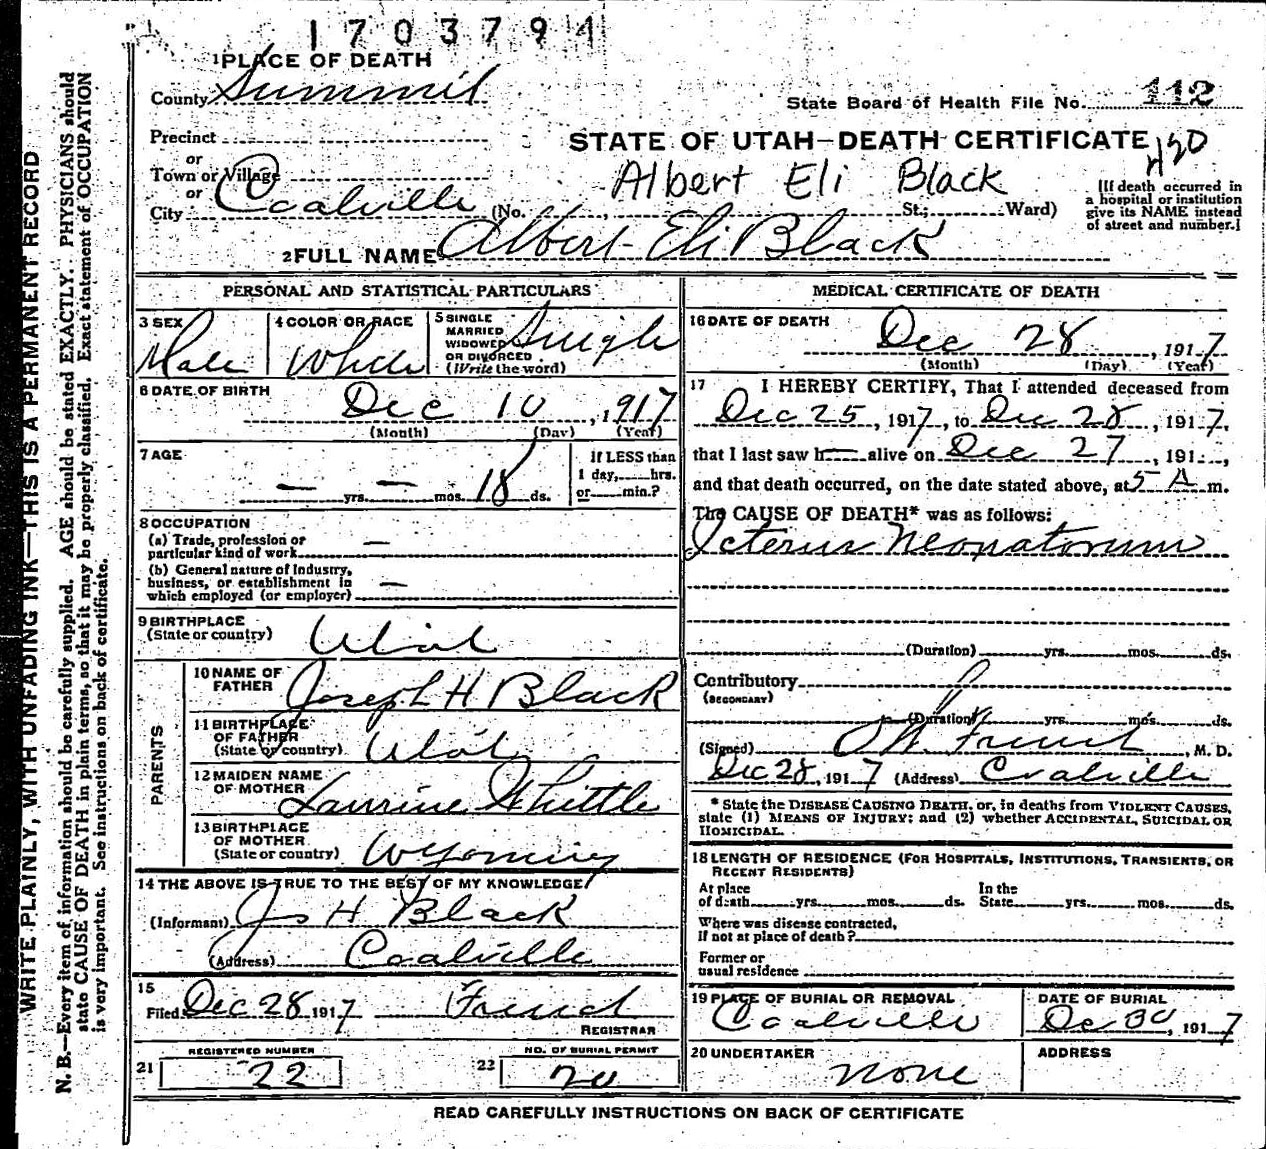 1703794
1 PLACE OF DEATH
County Summit
State Board of Health File No. 112
Precinct
STATE OF UTAH—DEATH CERTIFICATE
or
Town or Village
Albert Eli Black
or
City Coalville (No. , St.; Ward)
[If death occurred in
a hospital or institution
give its NAME instead
of street and number.]
2 FULL NAME Albert Eli Black
PERSONAL AND STATISTICAL PARTICULARS
3 SEX Male
4 COLOR OR RACE White
5 SINGLE
MARRIED
WIDOWED
OR DIVORCED
(Write the word) Single
6 DATE OF BIRTH
Dec 10, 1917
(Month) (Day) (Year)
7 AGE
— yrs. — mos. 18 ds.
If LESS than
1 day, hrs.
or min.?
8 OCCUPATION
(a) Trade, profession or
particular kind of work —
(b) General nature of Industry,
business, or establishment in
which employed (or employer) —
9 BIRTHPLACE
(State or country) Utah
PARENTS
10 NAME OF
FATHER Joseph H Black
11 BIRTHPLACE
OF FATHER
(State or country) Utah
12 MAIDEN NAME
OF MOTHER Laurine Whittle
13 BIRTHPLACE
OF MOTHER
(State or country) Wyoming
14 THE ABOVE IS TRUE TO THE BEST OF MY KNOWLEDGE
(Informant) Jos H Black
(Address) Coalville
15
Filed Dec 28 1917 French
REGISTRAR
REGISTERED NUMBER
21 22
NO. OF BURIAL PERMIT
22 20
MEDICAL CERTIFICATE OF DEATH
16 DATE OF DEATH
Dec 28, 1917
(Month) (Day) (Year)
17 I HEREBY CERTIFY, That I attended deceased from
Dec 25, 1917, to Dec 28, 1917,
that I last saw h— alive on Dec 27, 191 ,
and that death occurred, on the date stated above, at 5 A m.
The CAUSE OF DEATH* was as follows:
Icterus Neonatorum
(Duration) yrs. mos. ds.
Contributory
(SECONDARY)
(Duration) yrs. mos. ds.
(Signed) French, M. D.
Dec 28, 1917 (Address) Coalville
* State the DISEASE CAUSING DEATH, or, in deaths from VIOLENT CAUSES,
state (1) MEANS OF INJURY; and (2) whether ACCIDENTAL, SUICIDAL OR
HOMICIDAL.
18 LENGTH OF RESIDENCE (FOR HOSPITALS, INSTITUTIONS, TRANSIENTS, OR
RECENT RESIDENTS)
At place In the
of death yrs. mos. ds. State yrs. mos. ds.
Where was disease contracted,
If not at place of death?
Former or
usual residence
19 PLACE OF BURIAL OR REMOVAL
Coalville
DATE OF BURIAL
Dec 30, 1917
20 UNDERTAKER
none
ADDRESS
READ CAREFULLY INSTRUCTIONS ON BACK OF CERTIFICATE
WRITE PLAINLY, WITH UNFADING INK—THIS IS A PERMANENT RECORD
N. B.—Every item of information should be carefully supplied. AGE should be stated EXACTLY. PHYSICIANS should
state CAUSE OF DEATH in plain terms, so that it may be properly classified. Exact statement of OCCUPATION
is very important. See instructions on back of certificate.